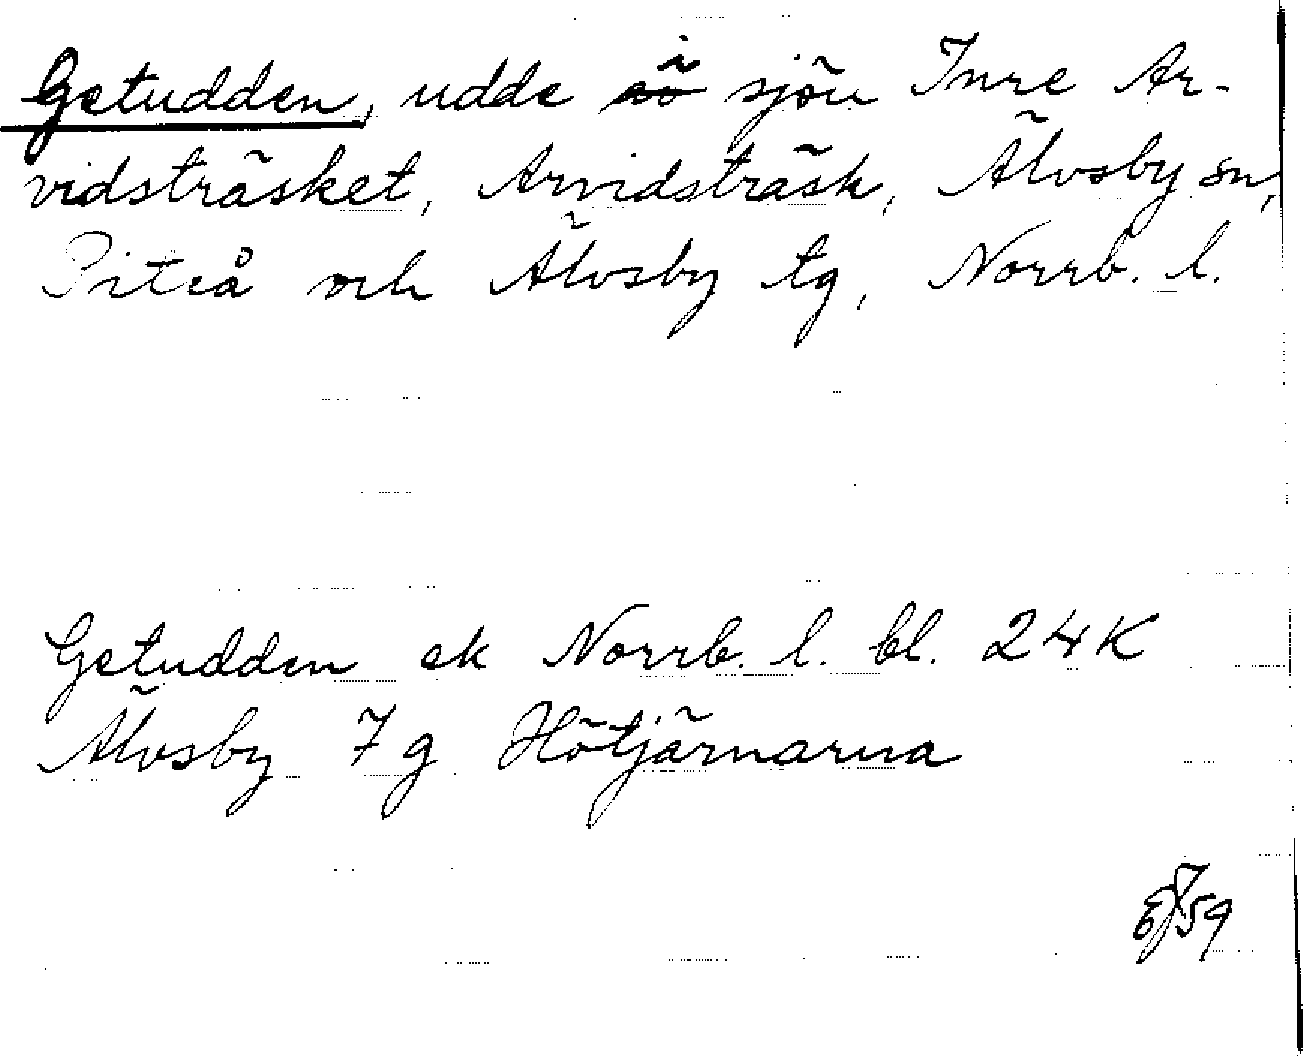 Getudden, udde i sjön Inre Ar-
vidsträsket, Arvidsträsk, Älvsby sn,
Piteå och Älvsby tg, Norrb. l.
Getudden ek Norrb. l. bl. 24K
Älvsby 7g Hötjärnarna